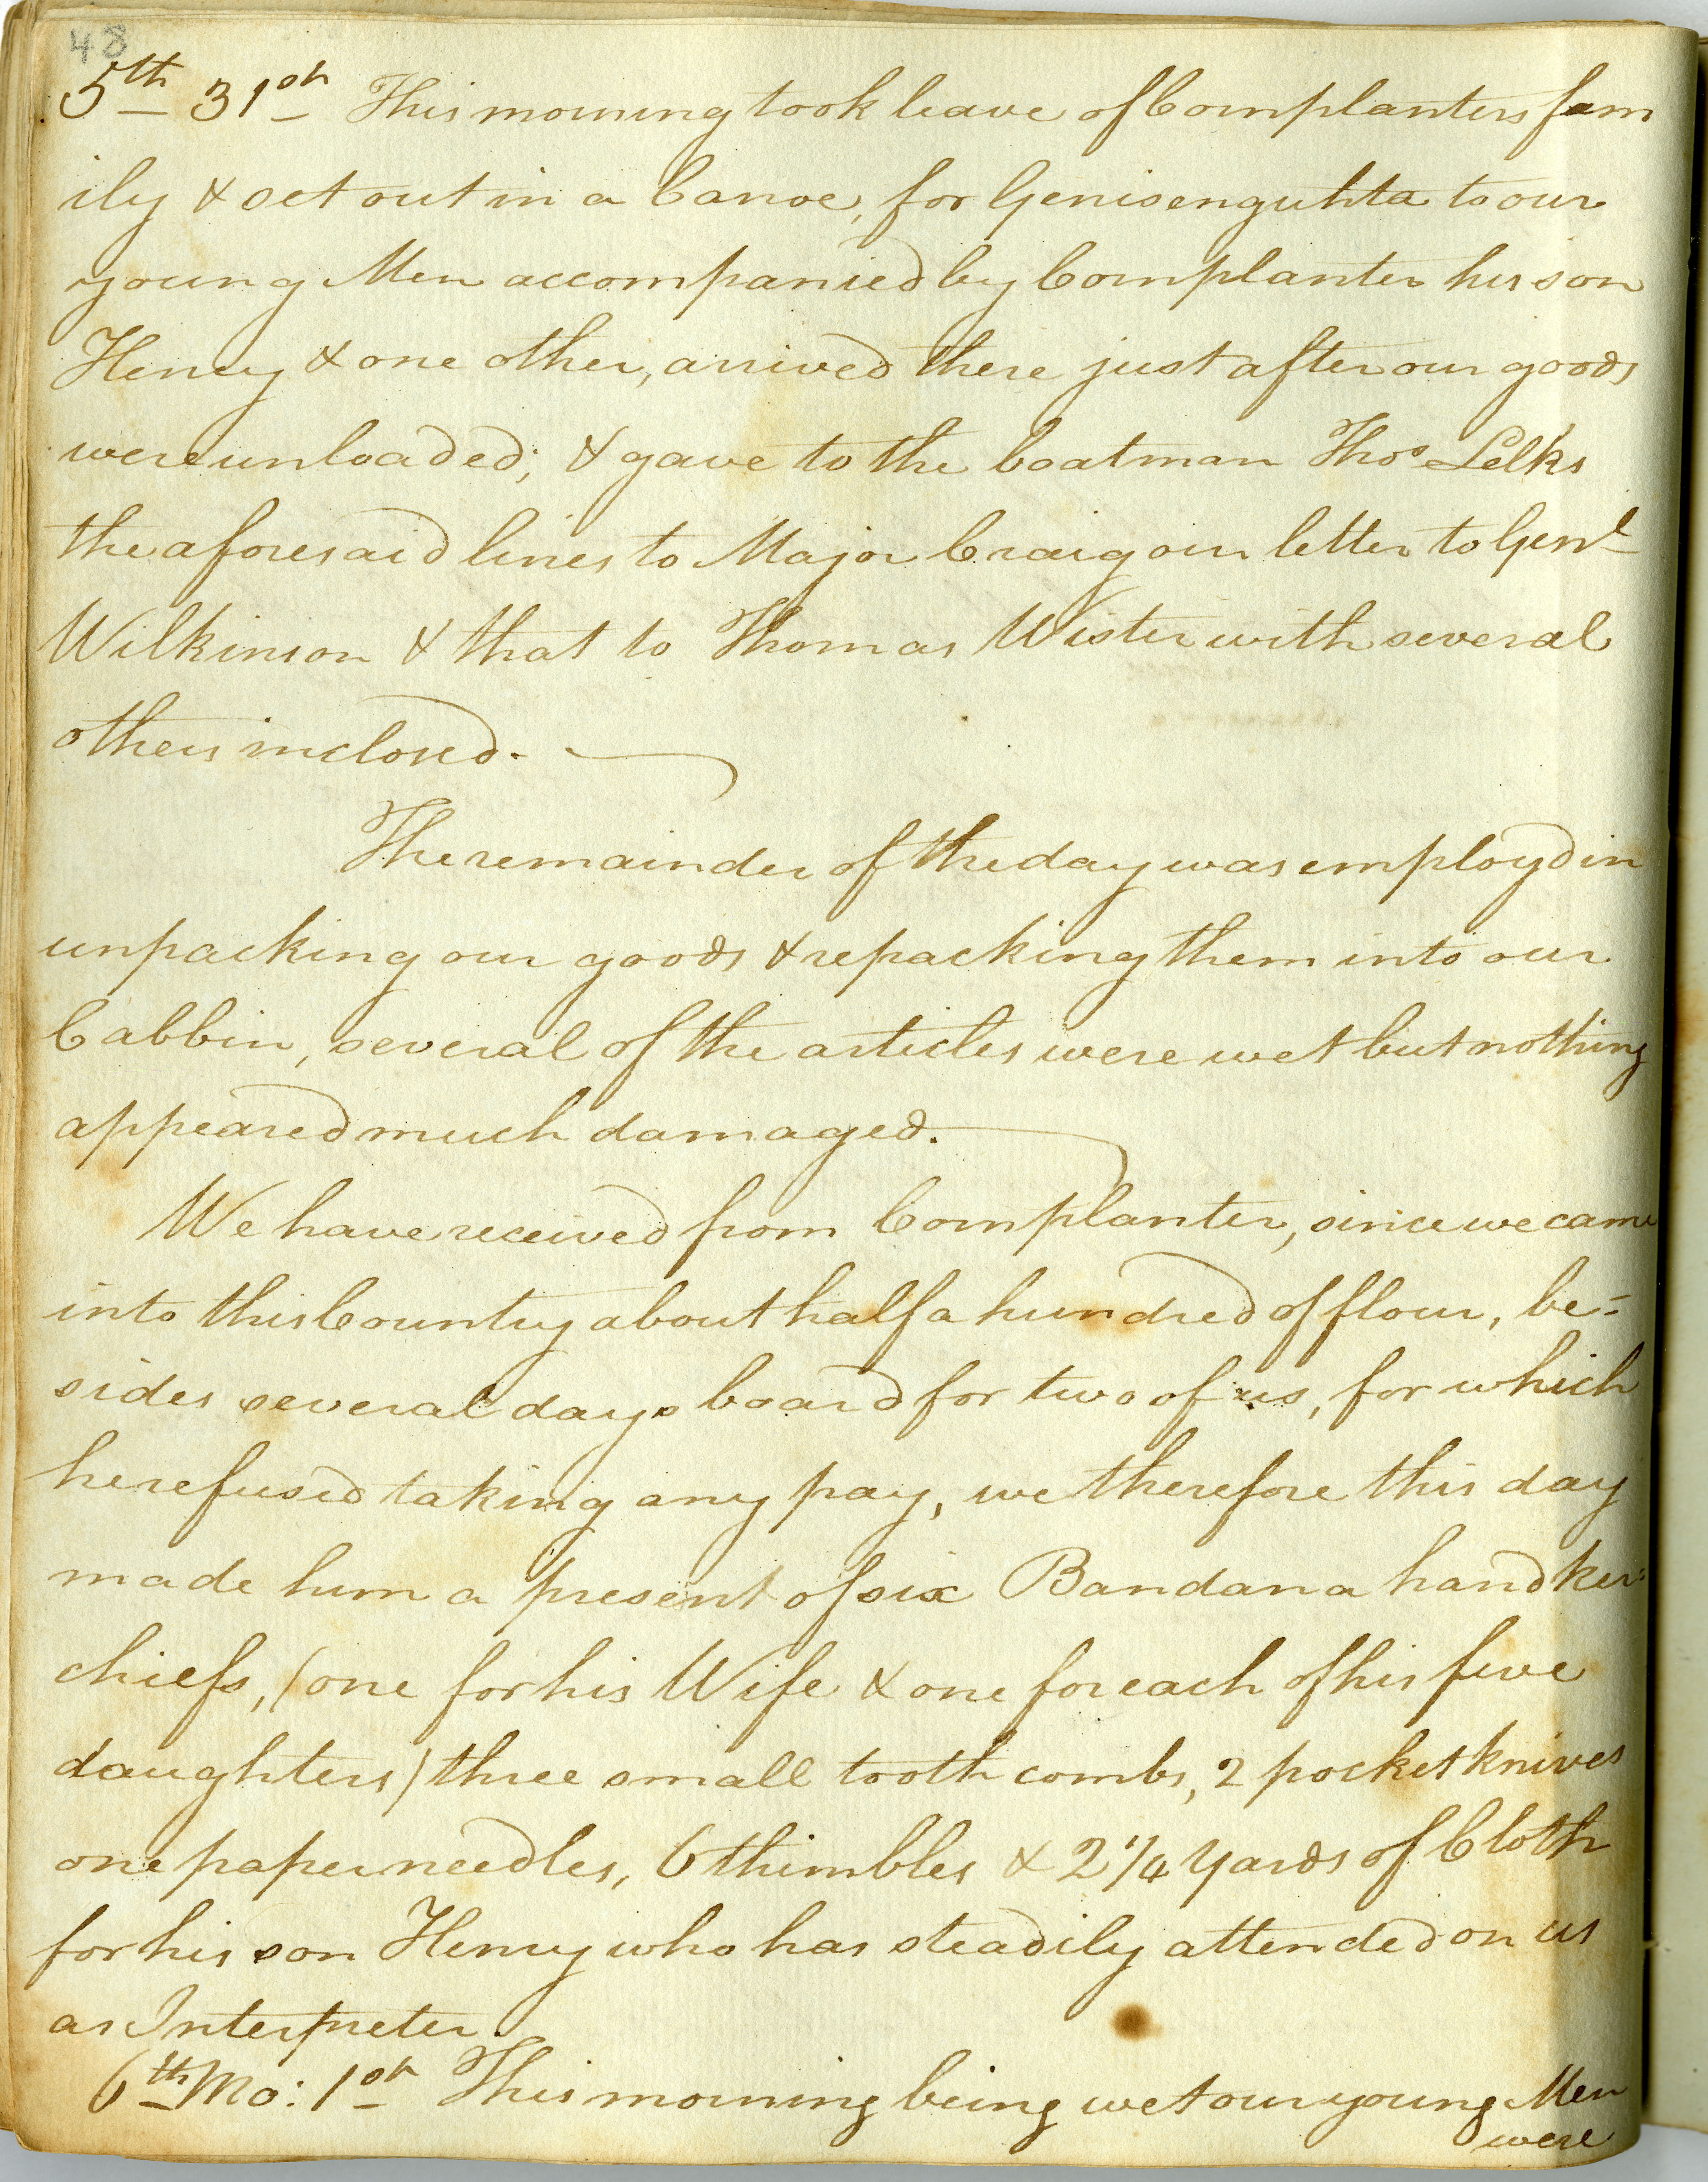 48
5th 31st This morning took leave of Cornplanters fam
ily & set out in a Canoe, for Genisenguhta to our
young Men accompanied by Cornplanter his son
Henry & one other, arrived there just after our goods
were unloaded; & gave to the boatman Thos
the aforesaid lines to Major Craig our letter to Genl
Wilkinson & that to Thomas Wister with several
others inclosed.
The remainder of the day was employd in
unpacking our goods & repacking them into our
Cabbin, several of the articles were wet but nothing
appeared much damaged.
We have received from Cornplanter, since we came
into this Country about half a hundred of flour, be=
sides several days board for two of us, for which
he refused taking any pay, we therefore this day
made him a present of six Bandana handker=
chiefs, (one for his Wife & one for each of his five
daughters) three small tooth combs, 2 pocket knives
one paper needles, 6 thimbles & 2 1/4 yards of Cloth
for his son Henry who has steadily attended on us
as Interpreter.
6th Mo: 1st This morning being wet our young Men
were